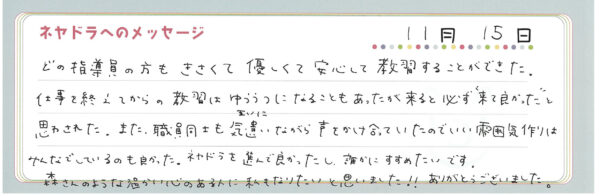 ネヤドラへのメッセージ
11月 15日
どの指導員の方もきさくて優しくて安心して教習することができた。
仕事を終えてからの教習はゆううつになることもあったが来ると必ず"来て良かった"と
思わされた。また、職員同士も互いに気遣いながら声をかけ合っていたのでいい雰囲気作りは
みんなでしているのも良かった。ネヤドラを選んで良かったし、誰かにすすめたいです。
森さんのような温かい心のある人に私もなりたいと思いました!! ありがとうございました。